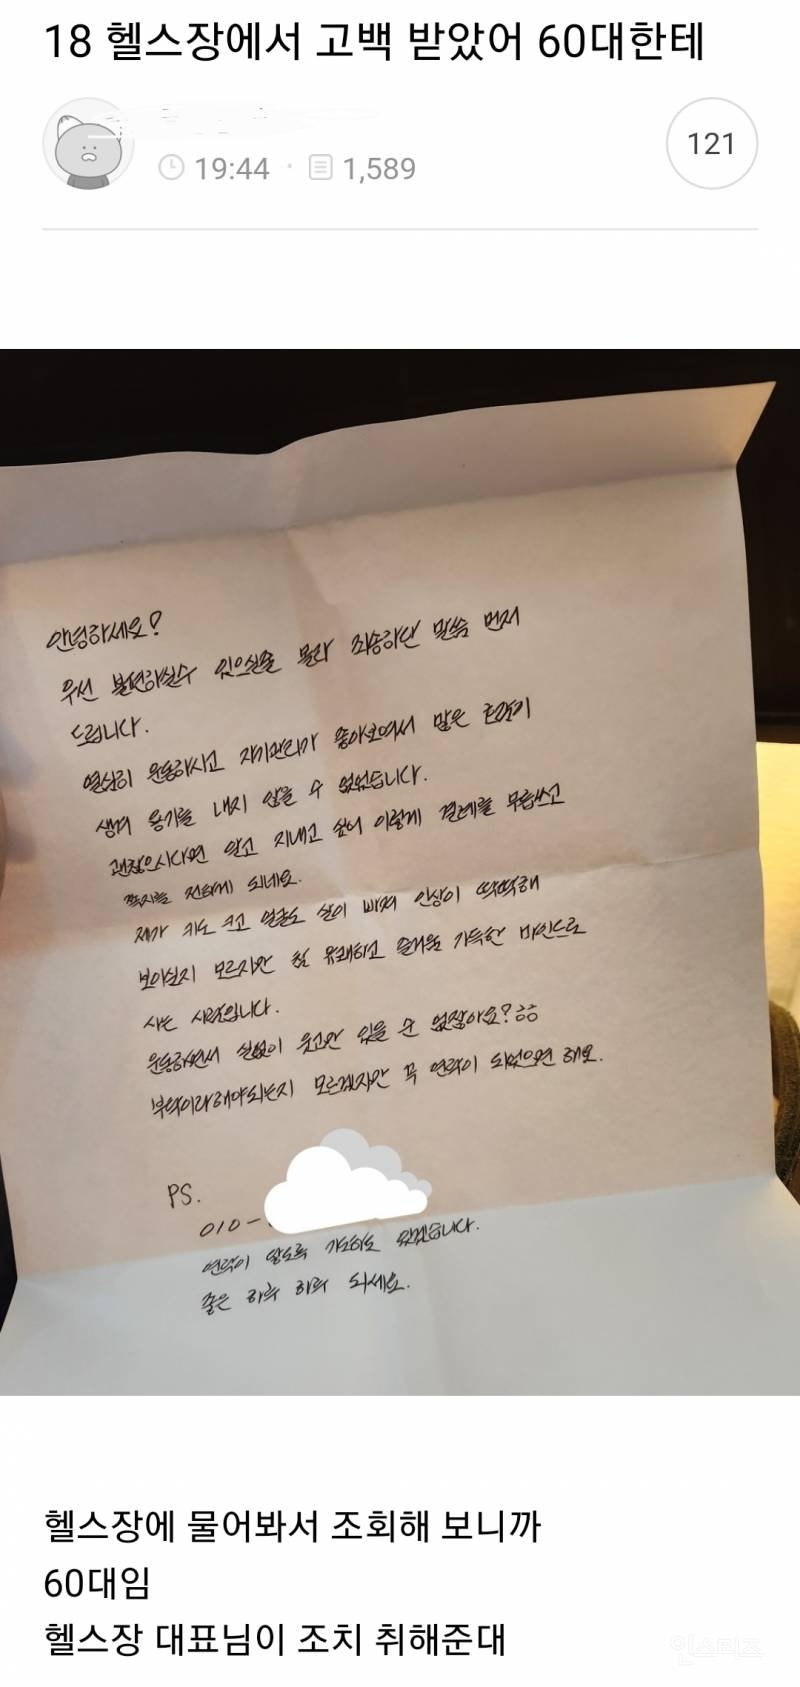 18 헬스장에서 고백 받았어 60대한테
19:44 · 1,589
121
안녕하세요?
우선 불편하실수 있으실줄 몰라 죄송하단 말씀 먼저
드립니다.
열심히 운동하시고 자기관리가 좋아보여서 많은 호감이
생겨 용기를 내지 않을 수 없었습니다.
괜찮으시다면 알고 지내고 싶어 이렇게 결례를 무릅쓰고
쪽지를 전하게 되네요.
제가 키도 크고 얼굴도 살이 빠져 인상이 딱딱해
보이실지 모르지만 참 유쾌하고 즐거움 가득한 마인드로
사는 사람입니다.
운동하면서 실없이 웃고만 있을 순 없잖아요? ㅎㅎ
부탁이라해야되는지 모르겠지만 꼭 연락이 되었으면 해요.
PS.
010-
연락이 잘되도록 기도하고 있겠습니다.
좋은 하루 하루 되세요.
헬스장에 물어봐서 조회해 보니까
60대임
헬스장 대표님이 조치 취해준대
인스티즈